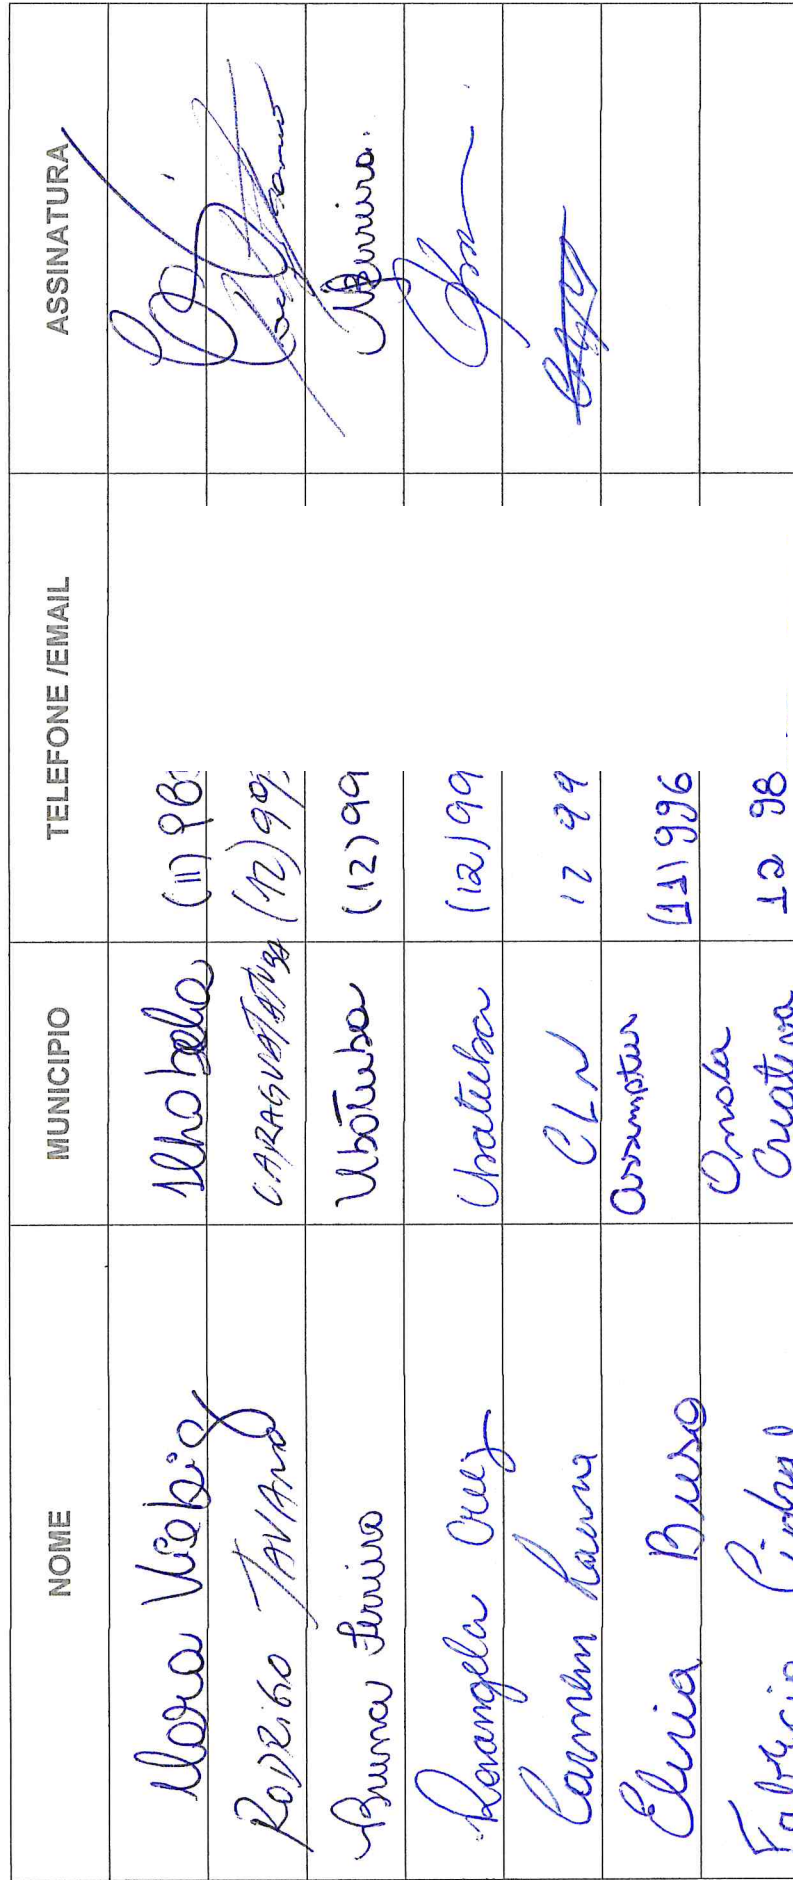 NOME MUNICIPIO TELEFONE /EMAIL ASSINATURA
Mara Ilhabela (11) 98
RODRIGO TAVANO CARAGUATATUBA (12) 99
Bruna Ferreira Ubatuba (12) 99 Ferreira.
Rosangela Cruz Ubatuba (12) 99
Carmem CLN 12 99
Elvira Buso Assimptur (11) 996
Fabrício Cidral Onda Criativa 12 98